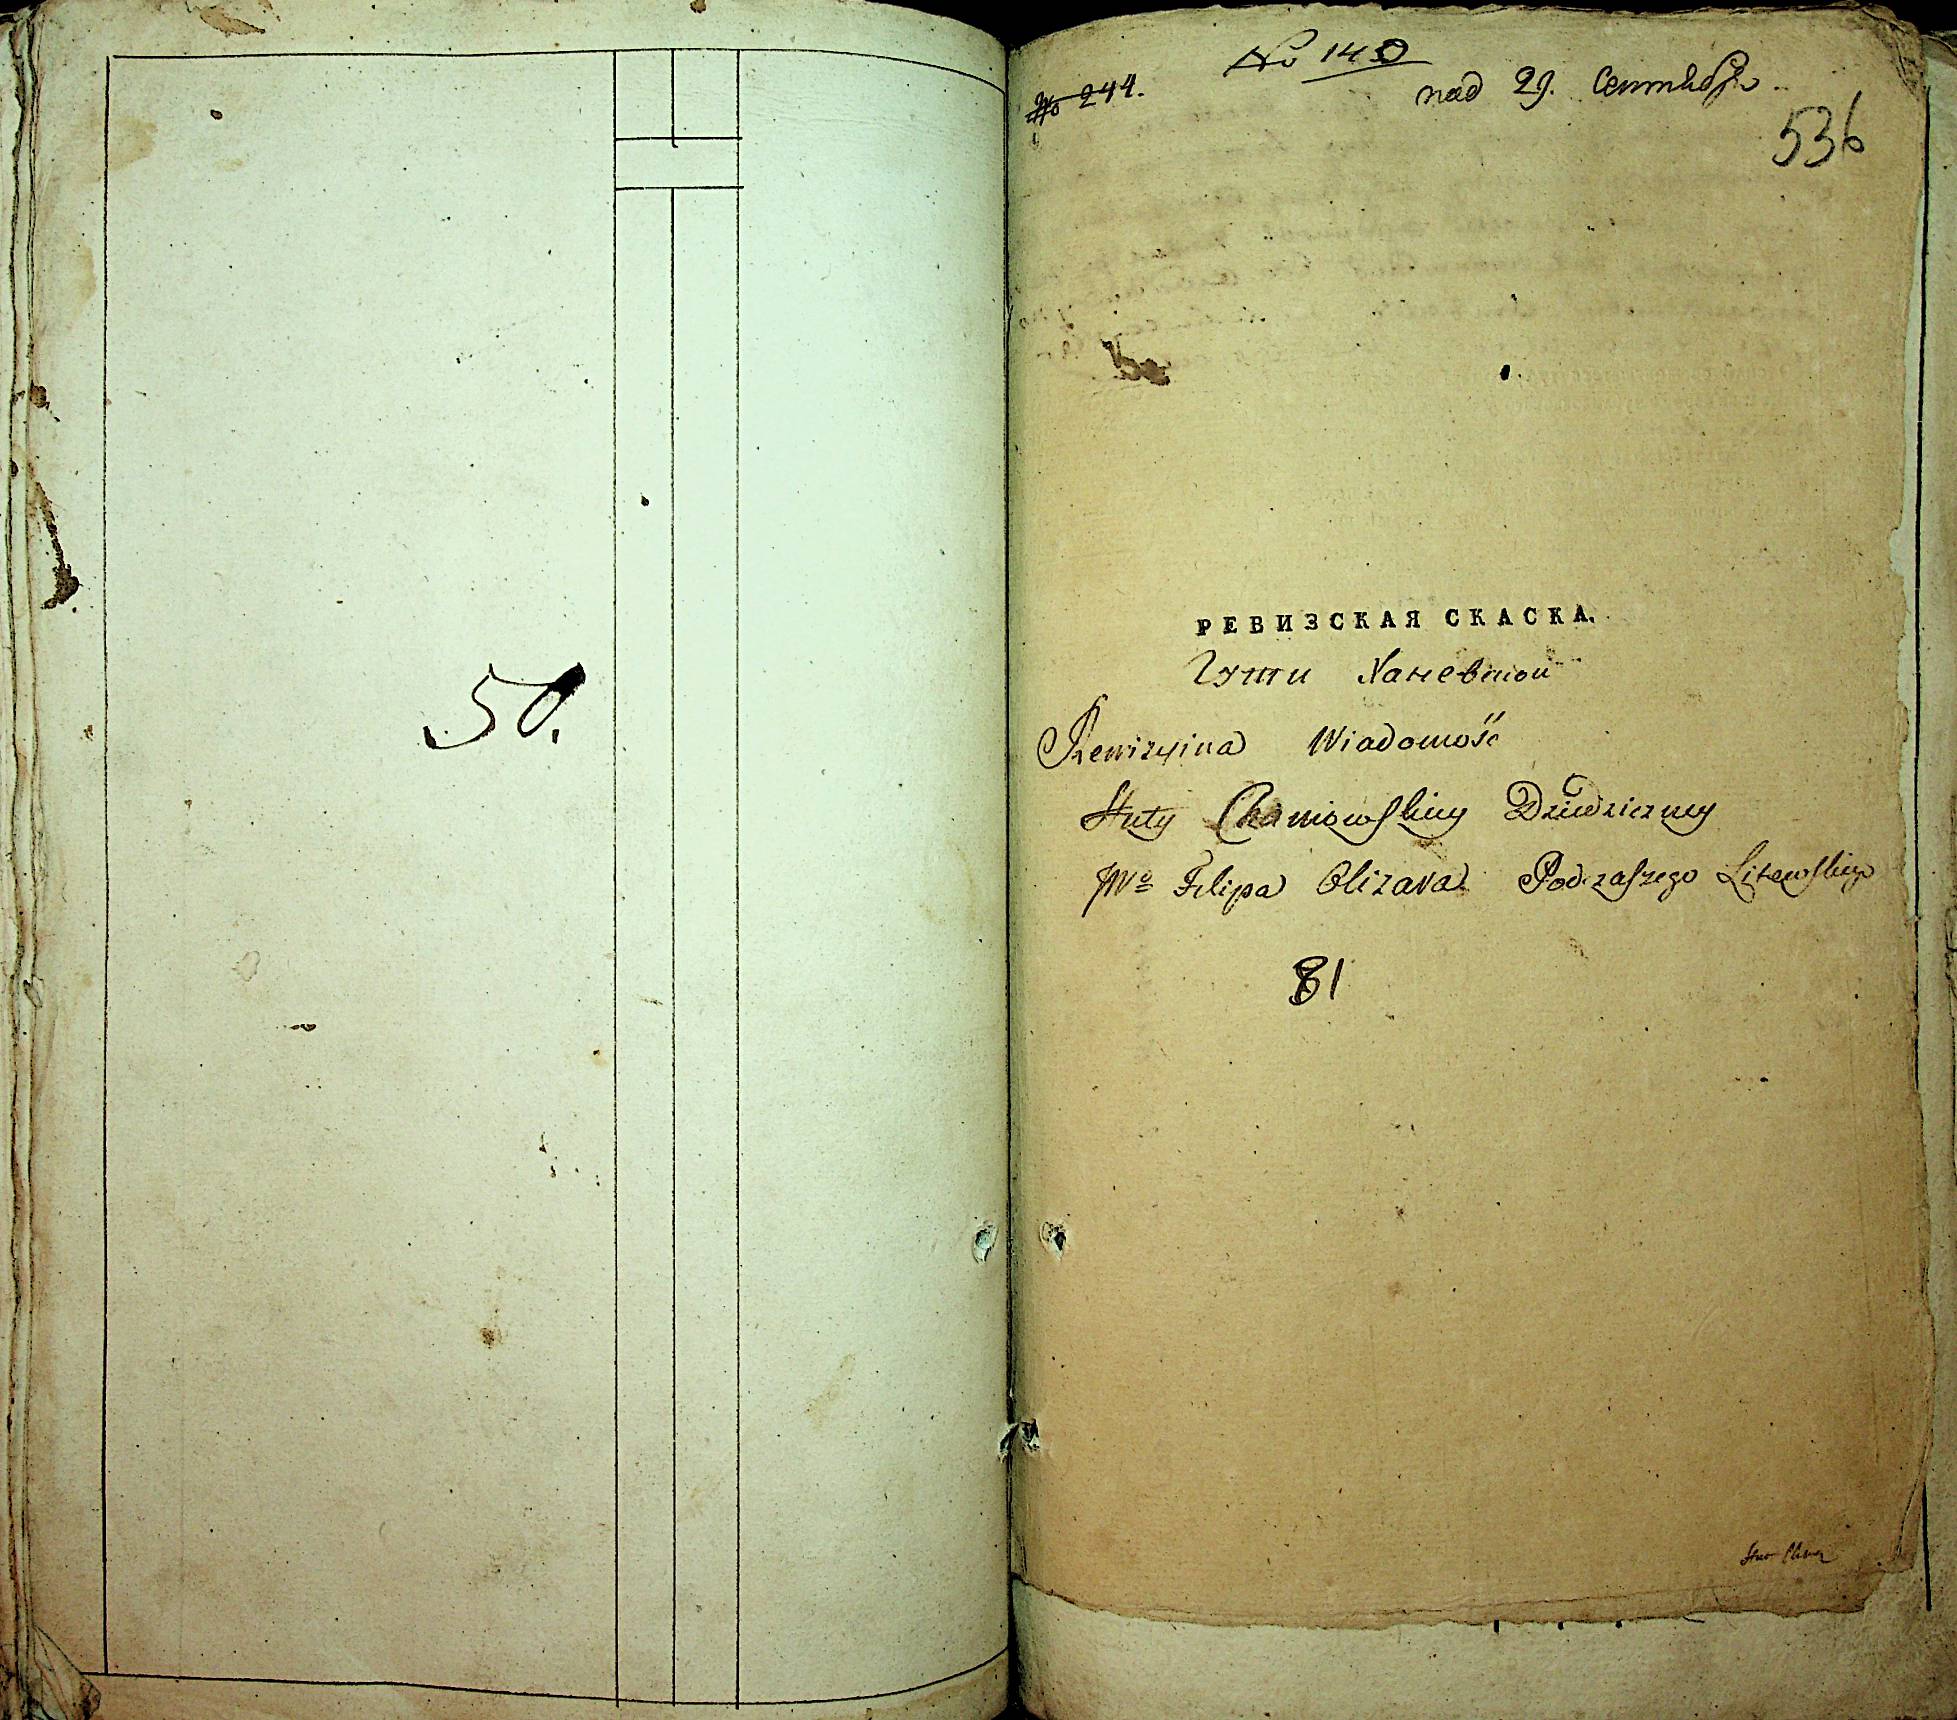 50.
№ 143
№ 244.
под 29. Сентября
536
РЕВИЗСКАЯ СКАСКА.
Гути Ханевской
Rewizyina Wiadomość
Huty Chaniowskiey Dziedziczney
JWo Filipa Olizara Podczaszego Litewskiego
81